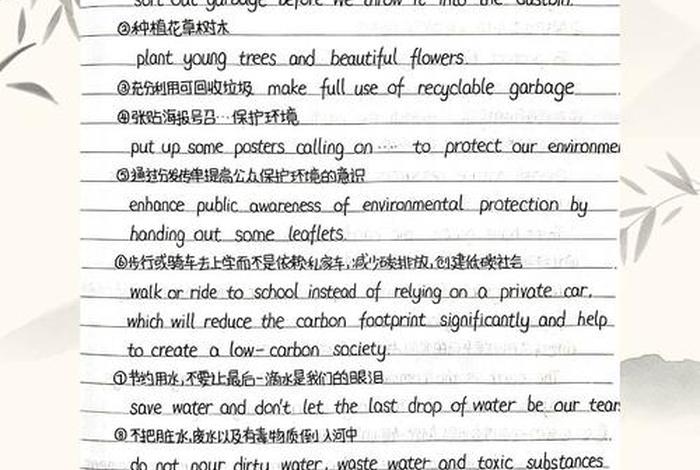 sort out garbage before we throw it into the dustbin.
②种植花草树木
plant young trees and beautiful flowers.
③充分利用可回收垃圾 make full use of recyclable garbage
④张贴海报号召…保护环境
put up some posters calling on…… to protect our environme
⑤通过分发传单提高公众保护环境的意识
enhance public awareness of environmental protection by
handing out some leaflets.
⑥步行或骑车去上学而不是依赖私家车,减少碳排放,创建低碳社会
walk or ride to school instead of relying on a private car,
which will reduce the carbon footprint significantly and help
to create a low-carbon society.
⑦节约用水,不要让最后一滴水是我们的眼泪
save water and don't let the last drop of water be our tears
⑧不把脏水,废水以及有毒物质倒入河中
do not pour dirty water, waste water and toxic substances